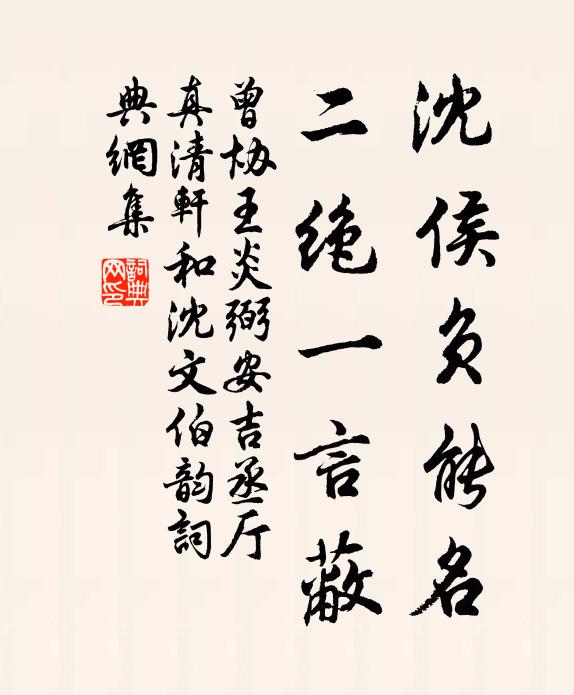 沈侯负能名
二绝一言蔽
曾協王炎弼安吉丞厅
真清軒和沈文伯韵詞
典網集
詞典网印